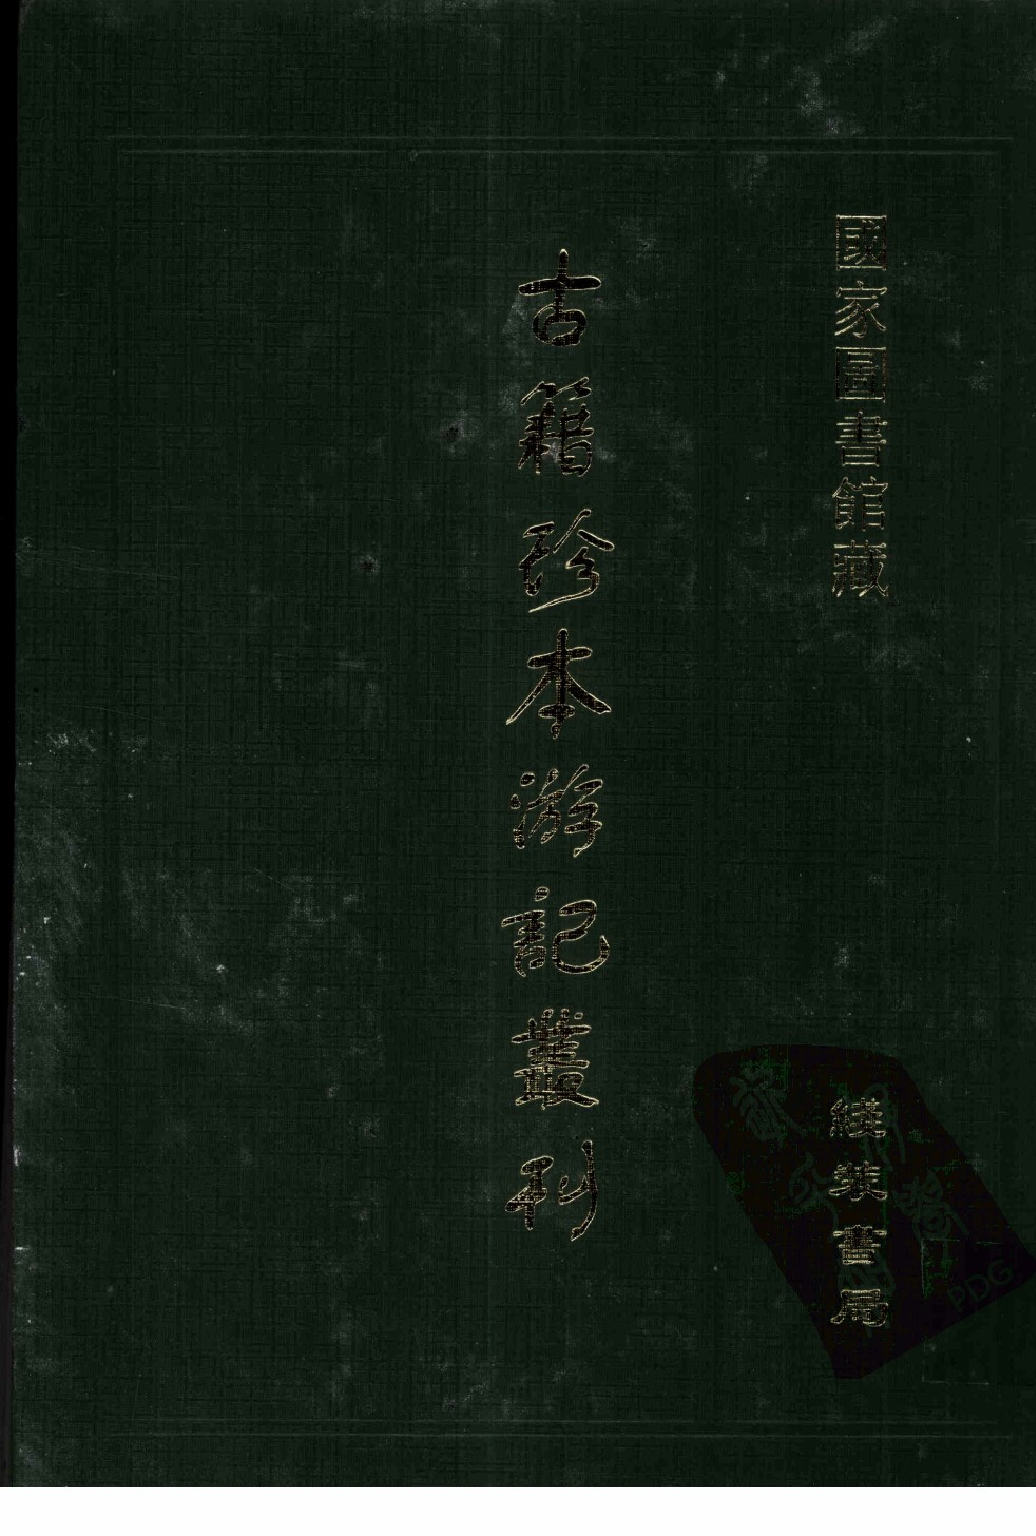 國家圖書館藏
古籍珍本游記叢刊
綫裝書局
PDG